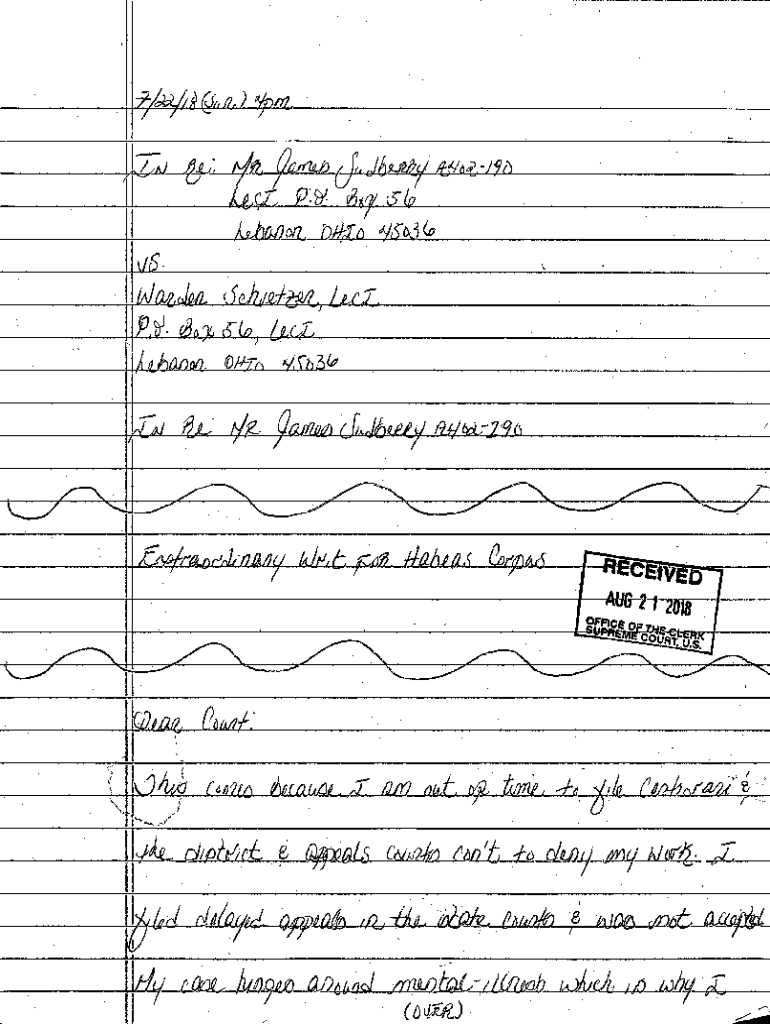 7/22/18 (Sun.) 4pm
In Re: Mr James Sudberry A402-190
LeCI P.O. Box 56
Lebanon OHIO 45036
VS.
Warden Schvetzer, LeCI
P.O. Box 56, LeCI
Lebanon OHIO 45036
In Re: Mr James Sudberry A402-290
Extraordinary Writ For Habeas Corpus
RECEIVED
AUG 21 2018
OFFICE OF THE CLERK
SUPREME COURT, U.S.
Dear Court:
This comes because I am out of time to file Certiorari &
the district & appeals courts con't to deny my work. I
filed delayed appeals in the state courts & was not accepted
My case hinges around mental-illness which is why I
(OVER)